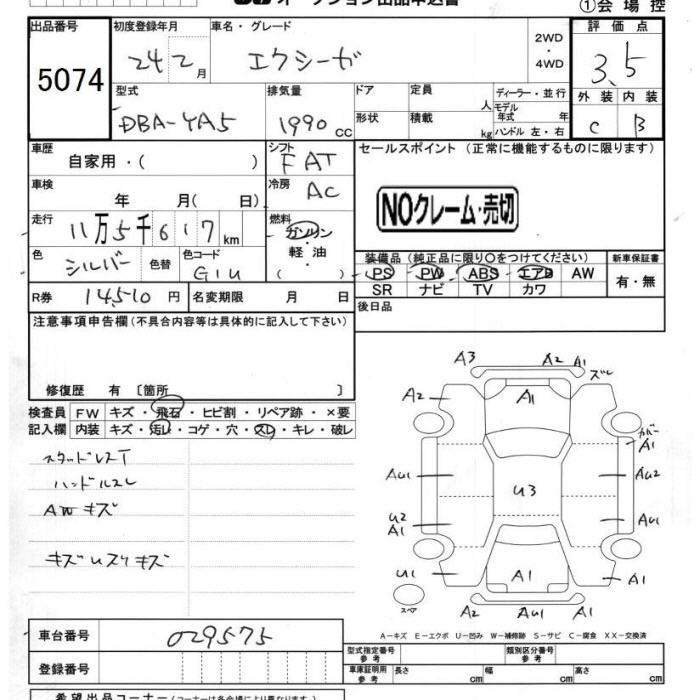 オークション出品申込書 ①会場控
出品番号 初度登録年月 車名・グレード 2WD・4WD 評価点
5074 24 2月 エクシーガ 3.5
型式 排気量 ドア 定員 人 ディーラー・並行 外装 内装
DBA-YA5 1990 cc 形状 積載 kg モデル年式 年 ハンドル 左・右 C B
車歴 自家用・( ) シフト FAT セールスポイント (正常に機能するものに限ります)
車検 年 月(日) 冷房 AC
NOクレーム・売切
走行 11万5千617km 燃料 ガソリン・軽油・( )
色 シルバー 色替 色コード G1U
装備品(純正品に限り〇をつけてください) 新車保証書
PS PW ABS エアB AW 有・無
SR ナビ TV カワ
R券 14,510円 名変期限 月 日
後日品
注意事項申告欄(不具合内容等は具体的に記入して下さい)
修復歴 有 〔箇所 〕
検査員 FW キズ・飛石・ヒビ割・リペア跡・×要
記入欄 内装 キズ・汚レ・コゲ・穴・スレ・キレ・破レ
スタッドレスT
ハンドルスレ
AWキズ
A3 A2 A1 ズレ
A2 A1
カバー A1
AU1 U3 AU2
U2 A1 AU1
U1 A1 A1
スペア A2 AU1 A1
A-キズ E-エクボ U-凹み W-補修跡 S-サビ C-腐食 XX-交換済
車台番号 029575
登録番号
型式指定番号 参考 類別区分番号 参考
車庫証明用 参考 長さ cm 幅 cm 高さ cm
希望出品コーナー(コーナーは各会場により異なります)